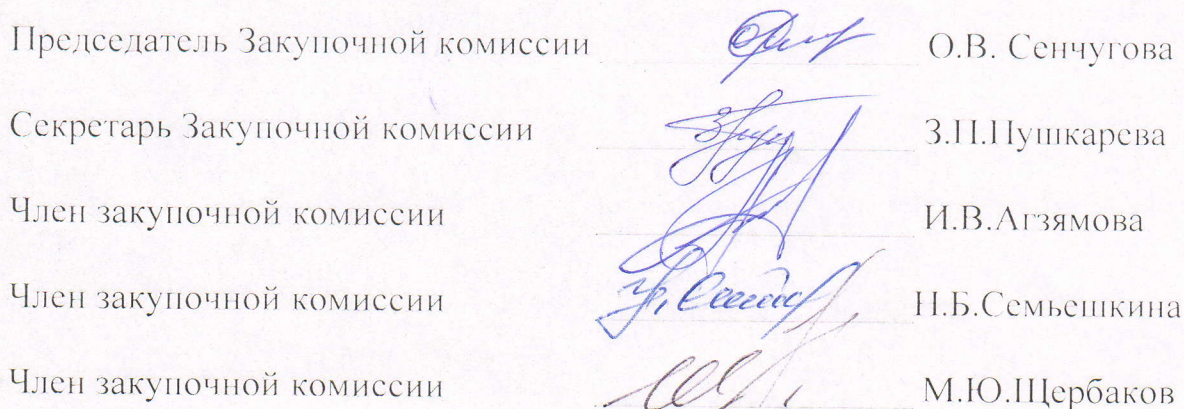 Председатель Закупочной комиссии О.В. Сенчугова
Секретарь Закупочной комиссии З.П.Пушкарева
Член закупочной комиссии И.В.Агзямова
Член закупочной комиссии Н.Б.Семьешкина
Член закупочной комиссии М.Ю.Щербаков